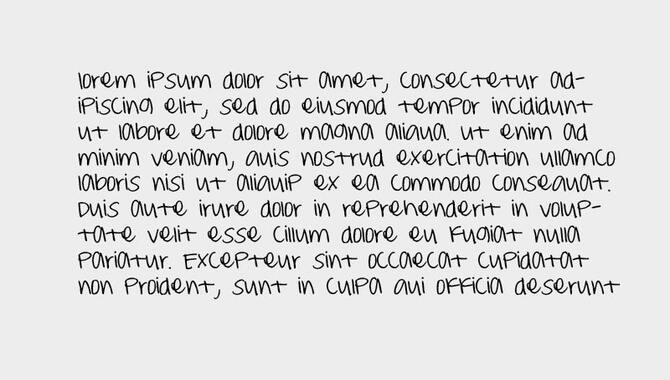 lorem ipsum dolor sit amet, consectetur ad-
ipiscing elit, sed do eiusmod tempor incididunt
ut labore et dolore magna aliqua. ut enim ad
minim veniam, quis nostrud exercitation ullamco
laboris nisi ut aliquip ex ea commodo consequat.
Duis aute irure dolor in reprehenderit in volup-
tate velit esse cillum dolore eu fugiat nulla
pariatur. Excepteur sint occaecat cupidatat
non proident, sunt in culpa qui officia deserunt